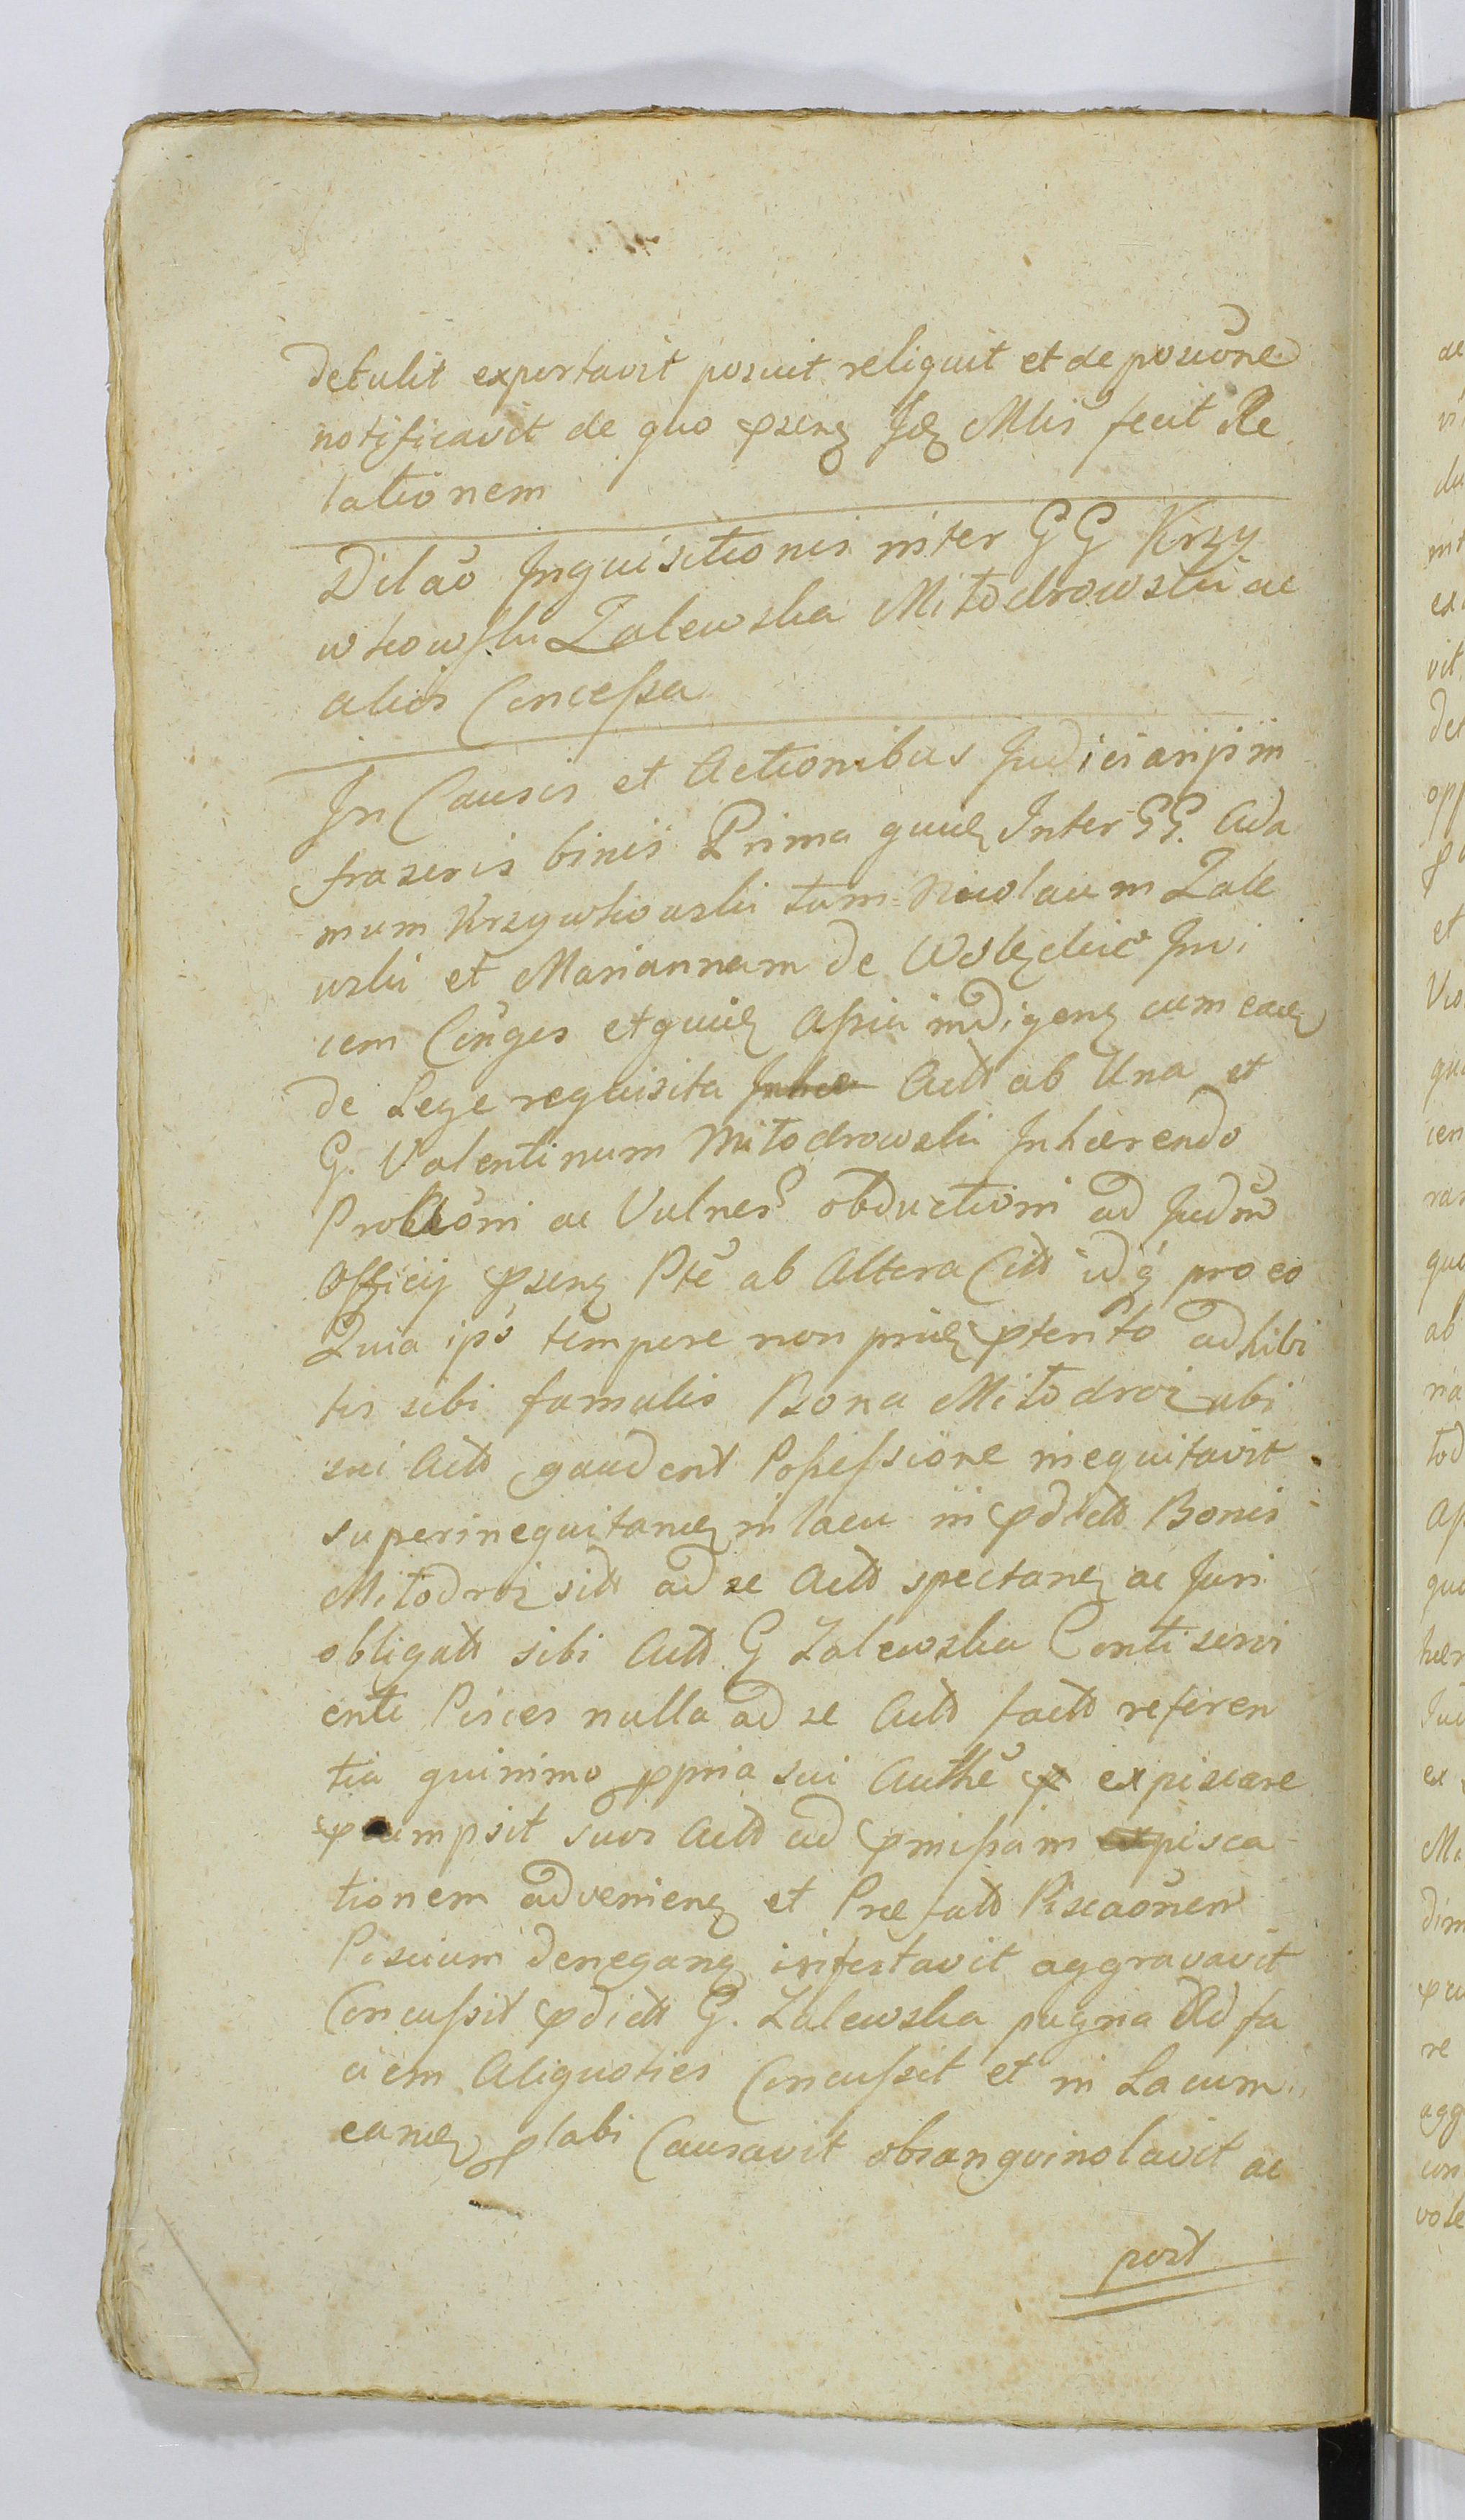 detulit exportavit posuit reliquit et de posiõne
notificavit de quo pszenz Jdz Mlis fecit Re
lationem
Dilaõ Inquisitionis inter GG Krzy
wkowski Zalewska Miłodrowski ac
alios Concessa
In Causis et Actionibus Judiciarijs in
fraseris binis Prima quidz Inter GG. Ada
mum Krzywkowski tum Nicolaum Zale
wski et Mariannam de
cem Conges et quidz Assia indigenz cum eadz
de Lege requisita Actt ab Una et
G. Valentinum Miłodrowski Inhærendo
ac Vulner obductioni ad Judm
Officij pszenz Pte ab Altera Citt idq pro eo
Quia ipso tempore non pridz pterito adhibi
tis sibi famulis Bona Miłodroz ubi
sui Actt gaudent Possessione inequitavit
superinequitandz in lacu in pdictt Bonis
Miłodroz sitt ad se Actt spectanz ac Juri
obligatt sibi Actt G Zalewska Contiservi
enti Pisces nulla ad se Actt factt referen
tia quinimo ppria sui Authe expiscare
psumpsit suos Actt ad pmissam expisca
tionem advenienz et Præfatt Piscaõnem
Piscium deneganz infestavit aggravavit
Concussit pdictt G. Zalewska pugna Ad fa
ciem Aliquoties Concussit et in Lacum
eandz plabi Causavit obsanguinolavit ac
post